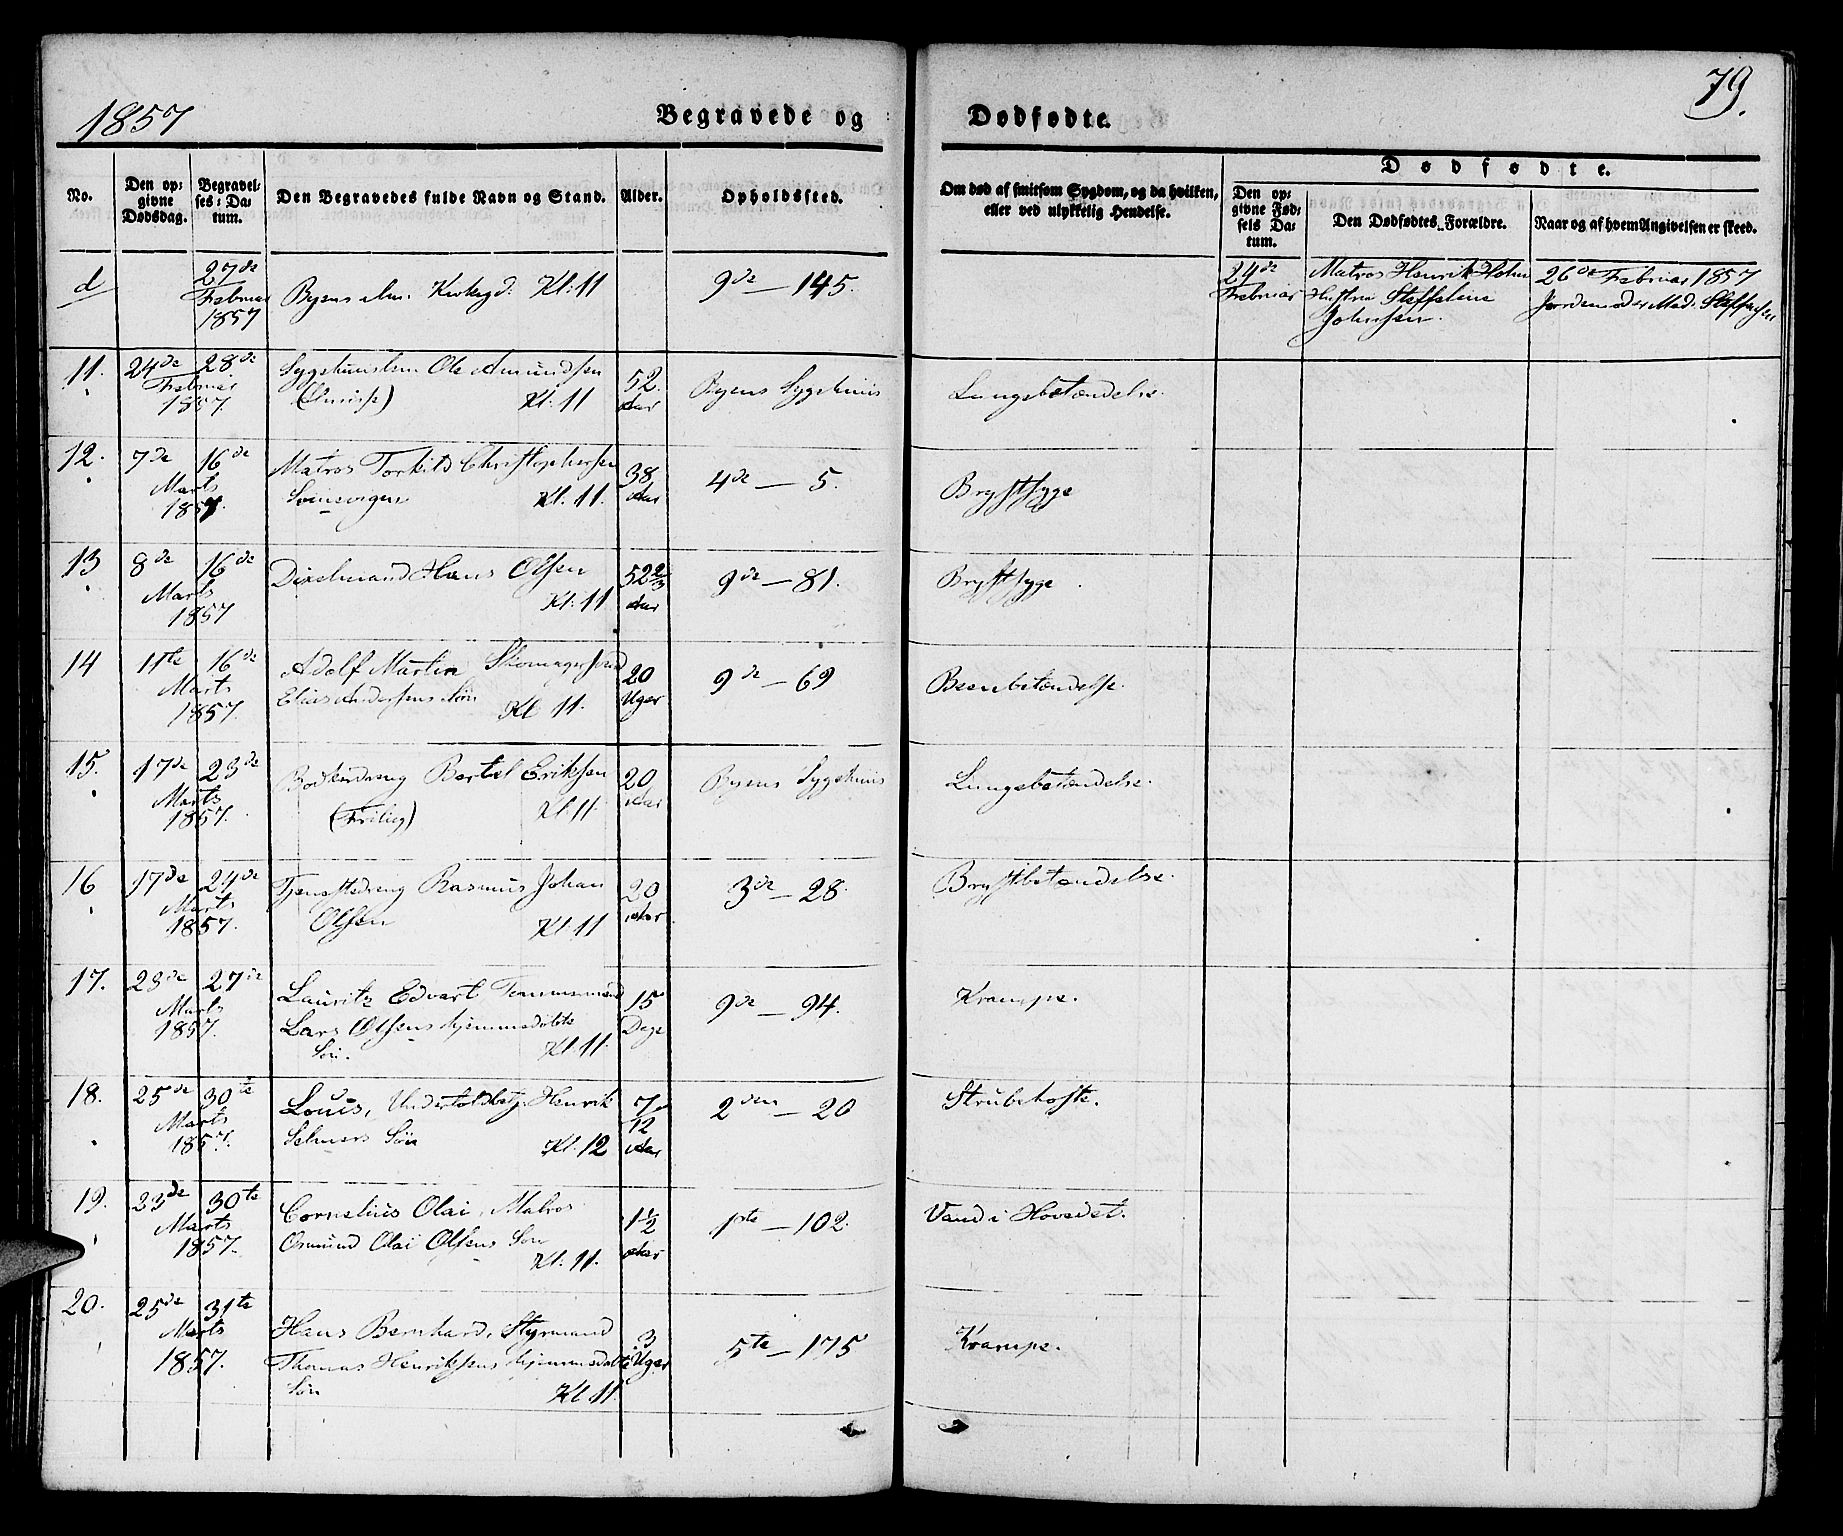 1857
Begravede og Dødfødte.
79.
No.
Den op:
givne
Dødsdag.
Begravel:
ses: Da:
tum.
Den Begravedes fulde Navn og Stand.
Alder.
Opholdssted.
Om død af smitsom Sygdom, og da hvilken,
eller ved ulykkelig Hendelse.
Dødfødte.
Den op:
givne Fød:
sels Da:
tum.
Den Dødfødtes Forældre.
Naar og af hvem Angivelsen er skeed.
d
27de
Februar
1857
Byens alm. Kirkegd: Kl: 11
9de — 145.
24de
Februar
Matros Henrik Holm
Hustru Steffeline
Johnsen.
26de Februar 1857
Jordemoder Mad.
11.
24de 28de
Februar
1857.
Ole Amundsen
Kl: 11
52.
Aar
Byens Sygehuus
Lungebetændelse.
12.
7de 16de
Marts
1857.
Matros Torkild Christophersen
Kl. 11.
38
Aar
4de — 5.
Brystsyge
13
8de 16de
Marts
1857
Hans Olsen
Kl: 11
52 2/3
Aar
9de — 81.
Brystsyge
14
11te 16de
Marts
1857.
Adolf Martin
Søn
Kl 11.
20
Uger
9de — 69
Beenbetændelse.
15.
17de 23de
Marts
1857.
Bertel Eriksen
Kl. 11.
20
Aar
Byens Sygehuus
Lungebetændelse.
16
17de 24de
Marts
1857.
Tjenestedreng Rasmus Johan
Olsen
Kl: 11
20
Aar
3de — 28.
Brystbetændelse.
17.
23de 27de
Marts
1857.
Lauritz Edvart Tømmermand
Lars Olsens hjemmedøbte
Søn.
Kl: 11.
15
Dage
9de — 94.
Krampe.
18.
25de 30te
Marts
1857.
Louis, Undertoldbetj. Henrik
Selmers Søn
Kl: 12
7/12
Aar
2den — 20
Strubehoste.
19.
23de 30te
Marts
1857.
Cornelius Olai, Matros
Osmund Olai Olsens Søn
Kl: 11.
1 1/2
Aar
1ste — 102.
Vand i Hovedet.
20.
25de 31te
Marts
1857.
Hans Bernhard, Styrmand
Thomas Henriksens hjemmedøbte
Søn
Kl 11.
3
Uger
5te — 175
Krampe.